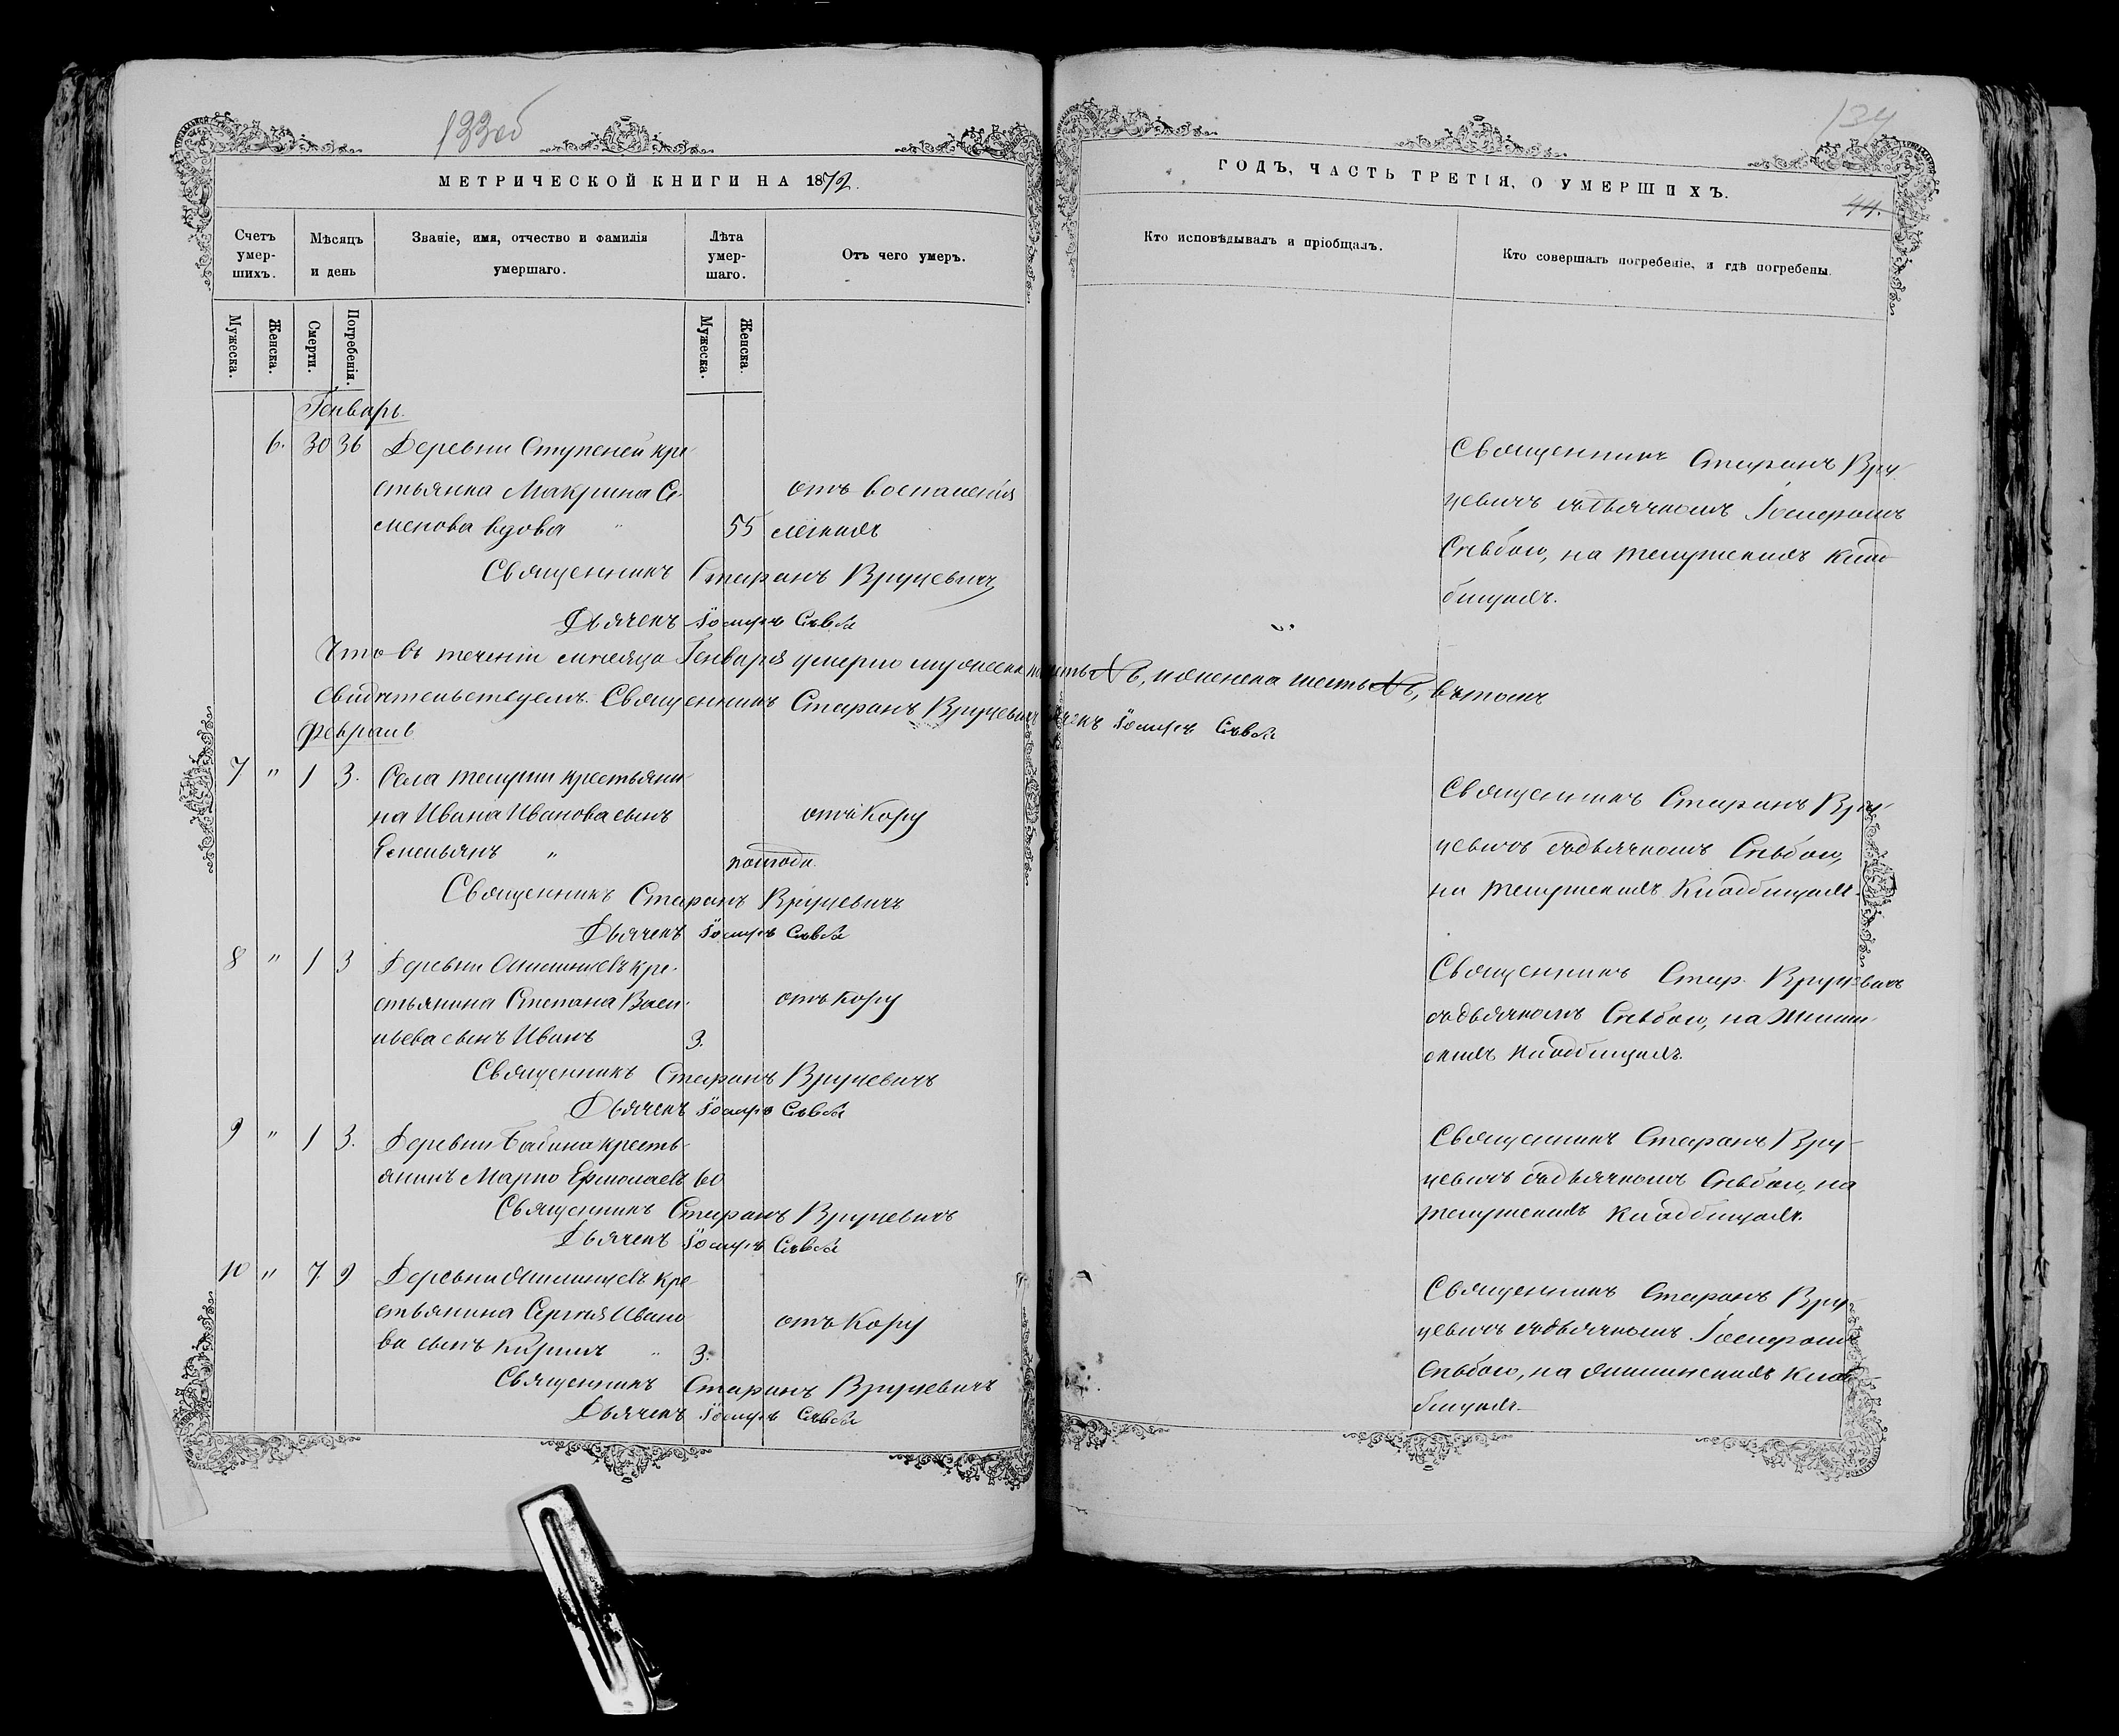 133об
МЕТРИЧЕСКОЙ КНИГИ НА 1872.
Счетъ умер-шихъ.
Мѣсяцъ и день
Званіе, имя, отчество и фамилія умершаго.
Лѣта умер-шаго.
Отъ чего умеръ.
Мужеска.
Женска.
Смерти.
Погребенія.
Мужеска.
Женска.
Генварь.
6. 30 36 Деревни Ступеней кре-
стьянка Макрина Се- отъ воспаленія
менова вдова " 55 легкихъ
Священникъ Стефанъ Вруцевичъ
Дьячекъ Іосифъ
Что въ теченіи мѣсяца Генваря умерло мужеска шесть № 6, и женска шесть № 6, въ томъ
свидѣтельствуемъ. Священникъ Стефанъ Вруцевичъ Дьячекъ Іосифъ
Февраль
7 " 1 3. Села крестьяни-
на Ивана Иванова сынъ отъ Кору
Емельянъ " полгода.
Священникъ Стефанъ Вруцевичъ
Дьячекъ Іосифъ
8 " 1 3 Деревни кре-
стьянина Степана Васи- отъ Кору
льева сынъ Иванъ 3.
Священникъ Стефанъ Вруцевичъ
Дьячекъ Іосифъ
9 " 1 3. Деревни Бабина кресть-
янинъ Марко Ермолаевъ 60
Священникъ Стефанъ Вруцевичъ
Дьячекъ Іосифъ
10 " 7 9 Деревни кре-
стьянина Сергѣя Ивано-
ва сынъ Кирилъ " 3. отъ Кору
Священникъ Стефанъ Вруцевичъ
Дьячекъ Іосифъ
134
ГОДЪ, ЧАСТЬ ТРЕТІЯ, О УМЕРШИХЪ.
44.
Кто исповѣдывалъ и пріобщалъ.
Кто совершалъ погребеніе, и гдѣ погребены.
Священникъ Стефанъ Вру-
цевичъ съ дьячкомъ Іосифомъ
на клад-
бищахъ.
Священникъ Стефанъ Вру-
цевичъ съ дьячкомъ
на Кладбищахъ.
Священникъ Стеф. Вруцевичъ
съ дьячкомъ на
кладбищахъ.
Священникъ Стефанъ Вру-
цевичъ съ дьячкомъ на
кладбищахъ.
Священникъ Стефанъ Вру-
цевичъ съ дьячкомъ Іосифомъ
на клад-
бищахъ